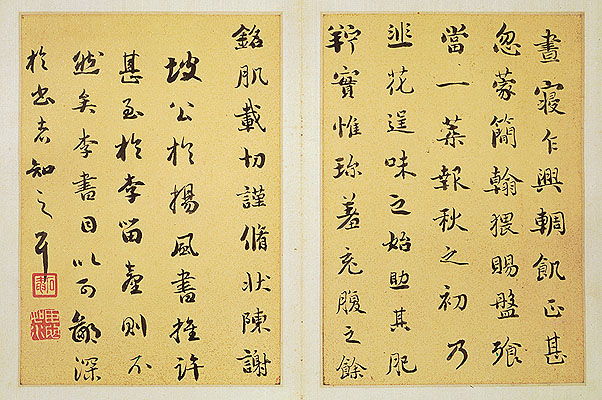 晝寢乍興輖飢正甚
忽蒙簡翰猥賜盤飧
當一葉報秋之初乃
韭花逞味之始助其肥
羜實惟珍羞充腹之餘
銘肌載切謹脩狀陳謝
坡公於揚風書推許
甚至於李留臺則不
然矣李書目以可深
於書者知之耳